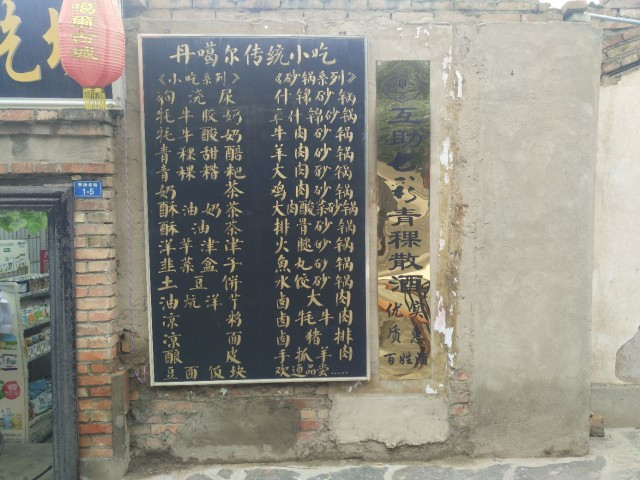 噶尔古城
丹噶尔传统小吃
《小吃系列》
狗浇尿
牦牛酸奶
青稞甜醅
青稞糌粑
奶茶
酥油奶茶
酥油茶
洋芋津津
韭菜盒子
土豆饼
油炕洋芋
凉粉
凉面
酿皮
豆面饭块
《砂锅系列》
什锦砂锅
草什锦砂锅
牛肉砂锅
羊肉砂锅
大肉砂锅
鸡肉砂锅
大肉酸菜砂锅
排骨砂锅
火腿砂锅
魚丸砂锅
水饺砂锅
卤大肉
卤牦牛肉
卤猪排
手抓羊肉
欢迎品尝......
互助七彩青稞散酒
优质实惠
百姓
1-5